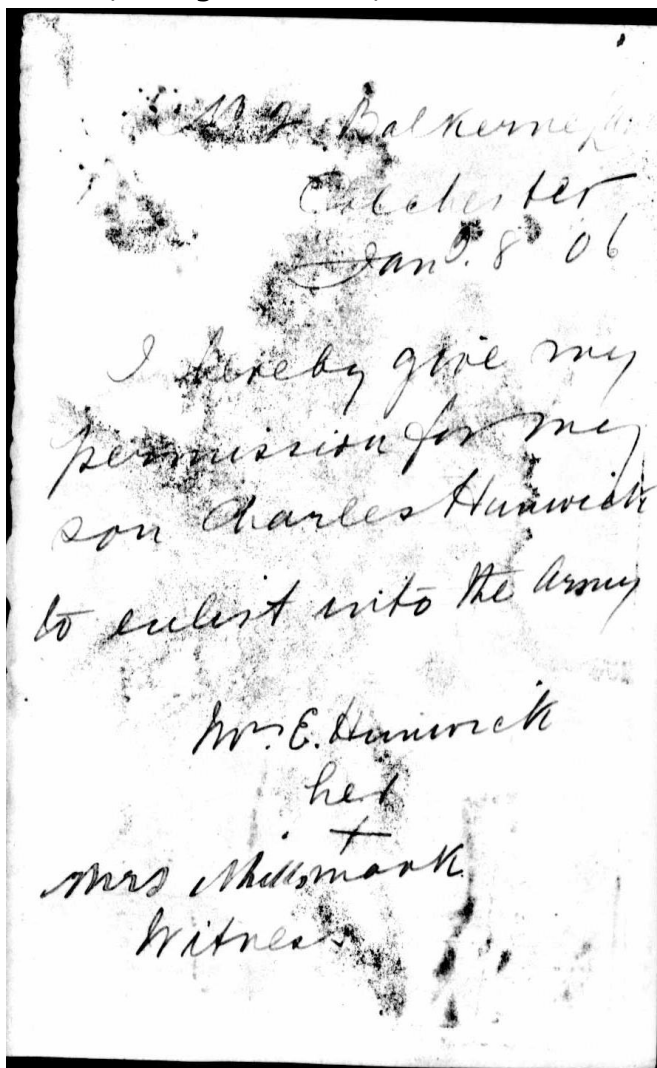 Balkerne
Colchester
Jany. 8 06
I hereby give my
permission for my
son Charles Hunwick
to enlist into the Army
Mrs. E. Hunwick
her
+
Mrs Mills mark
Witness